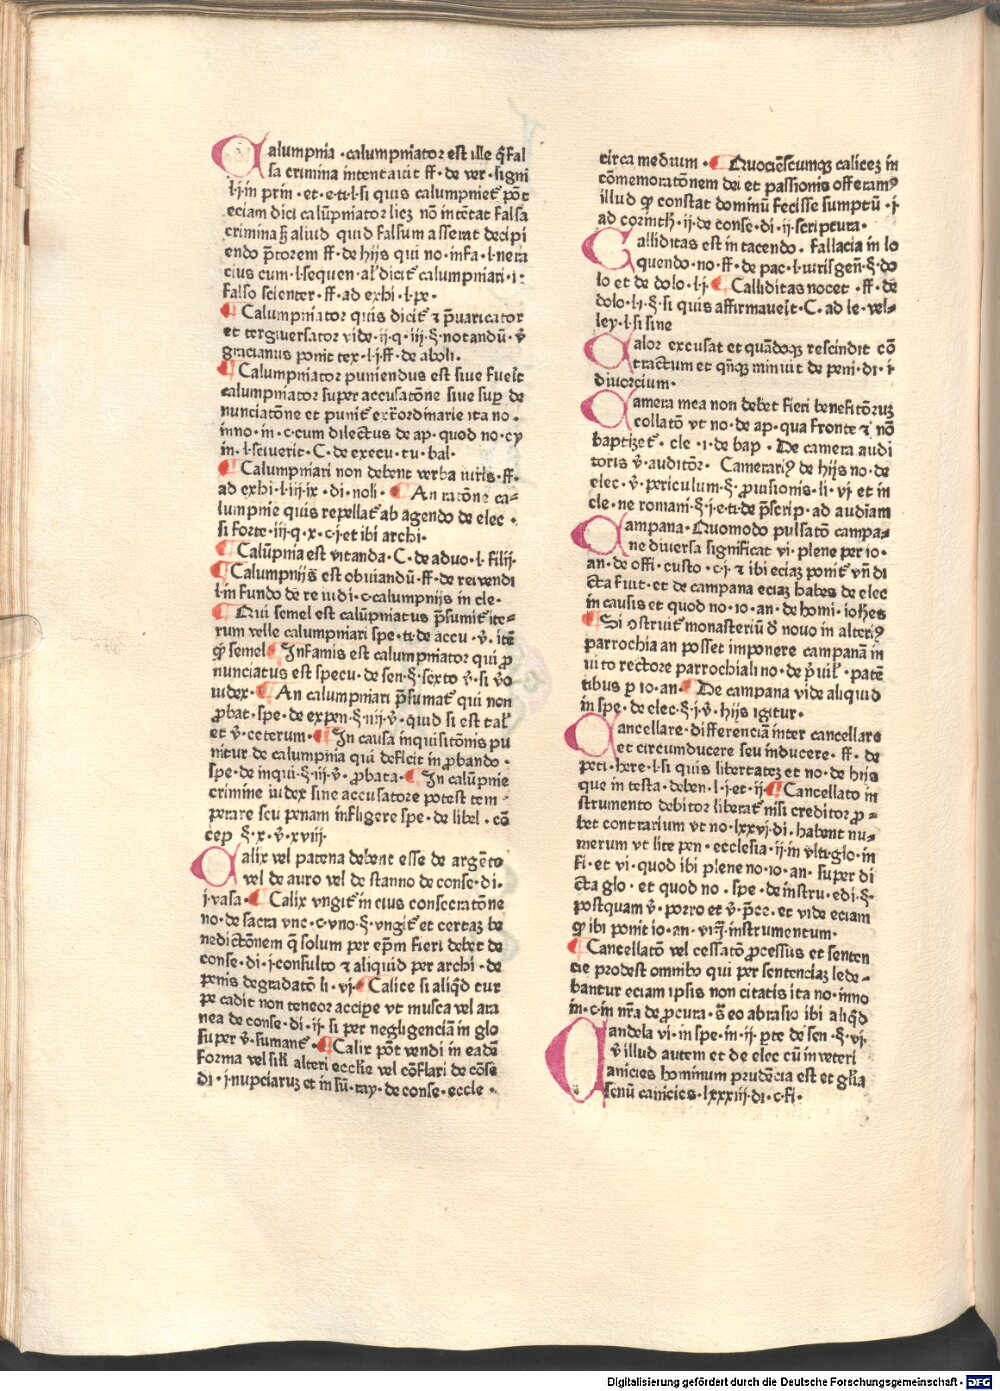 Calumpnia ·calumpniator est ille q̃ fal
sa crimina intentauit ff·de ver·signi
l·j·in prin·et·e·ti·l·si quis calumpniet᷒ põt
eciam dici calũpniator licz nõ intẽtat falsa
crimina ß aliud quid falsum asserat decipi
endo p̃torem ff·de hijs qui no·infa·l·nera
cius cum·l·sequen·al᷒ dicit᷒ calumpniari·i:
falso scienter·ff·ad exhi·l·pe·
¶ Calumpniator quis dicit᷒ ⁊ p̃uaricator
et tergiuersator vide·ij·q·iij·§·notandũ·v̊
gracianus ponit tex·l·j·ff·de aboli·
¶ Calumpniator puniendus est siue fuerit
calumpniator super accusatõne siue sup de
nunciatõne et punit᷒ extᷓordinarie ita no·
inno·in·c·cum dilectus de ap·quod no·cy
in·l·si·uerit·C·de execu·tu·bal·
¶ Calumpniari non debent verba iuris·ff·
ad exhi·l·iij·ix·di·noli· ¶ An ratõne ca-
lumpnie quis repellat᷒ ab agendo de elec·
si forte·iij·q·x·c·j·et ibi archi·
¶ Calũpnia est vitanda·C·de aduo·l·filij·
¶ Calumpnijs est obuiandũ·ff·de rei vendi
l·in fundo de re iudi·c·calumpnijs in cle·
¶ Qui semel est calũpniatus p̃sumit᷒ ite-
rum velle calumpniari spe·ti·de accu·v̊·itẽ
q semel ¶ Infamis est calumpniator qui ꝓ
nunciatus est specu·de sen·§·sexto v̊·si v̊o
iudex· ¶ An calumpniari p̃sumat᷒ qui non
ꝓbat·spe·de expen·§·iiij·v̊·quid si est tal᷒
et v̊·ceterum· ¶ In causa inquisitõnis pu
nitur de calumpnia qui deficit in ꝓbando·
spe·de inqui·§·iij·v̊·ꝓbata· ¶ In calũpnie
crimine iudex sine accusatore potest tem
perare seu penam infligere spe·de libel·cõ
cep §·x·v̊·xviij·
Calix vel patena debent esse de argẽto
vel de auro vel de stanno de conse·di·
j·vasa· ¶ Calix vngit᷒ in eius consecratõne
no·de sacra vnc·c·vno·§·vngit᷒ et certaz be
nedictõnem q̃ solum per epm̃ fieri debet de
conse·di·j·consulto ⁊ aliquid per archi·de
penis degradatõ li·vj· ¶ Calice si aliq̃d tur
pe cadit non teneor accipe vt musca vel ara
nea de conse·di·ij·si per negligenciã in glo
super v̊·sumant᷒· ¶ Calix põt vendi in eadẽ
forma vel sili alteri ecclie vel cõflari de cõse
di·j·nupciaruz et in sũ·ray·de conse·eccle·
circa medium· ¶ Quociẽscumq calicez in
cõmemoratõnem dei et passionis offeram᷒
illud q constat dominũ fecisse sumptũ·j·
ad corinth·ij·de conse·di·ij·scriptura·
Calliditas est in tacendo·fallacia in lo
quendo·no·ff·de pac·l·iurisgen̄·§·do
lo et de dolo·l·j· ¶ Calliditas nocet·ff·de
dolo·l·j·§·si quis affirmauerit·C·ad le·vel-
ley·l·si sine
Calor excusat et quãdoq rescindit cõ
tractum et qñq minuit de peni·di·j·
diuorcium·
Camera mea non debet fieri benefitõruz
collatõ vt no·de ap·qua fronte ⁊ nõ
baptizet᷒·cle·j·de bap·De camera audi
toris v̊·auditõr·Camerari᷒ de hijs no·de
elec·v̊·periculum·§·prouisionis·li·vj et in
cle·ne romani·§·j·e·ti·de p̃scrip·ad audiam
Campana·Quomodo pulsatõ campa-
ne diuersa significat vi·plene per io·
an·de offi·custo·c·j·⁊ ibi eciaz ponit vñ di
cta fuit·et de campana eciaz habes de elec
in causis et quod no·io·an·de homi·iohes
¶ Si ɔstruit᷒ monasteriũ d novo in alteri᷒
parrochia an posset imponere campanã in
uito rectore parrochiali no·de p̃uil᷒·patẽ
tibus p io·an· ¶ De campana vide aliquid
in spe·de elec·§·j·v̊·hijs igitur·
Cancellare·differenciã inter cancellare
et circumducere seu inducere·ff·de
peti·here·l·si quis libertatez et no·de hijs
que in testa·delen·l·j·et·ij· ¶ Cancellato in
strumento debitor liberat᷒ nisi creditor ꝓ-
bet contrarium vt no·lxxvj·di·habent nu-
merum vt lite pen·ecclesia·ij·in vlti·glo·in
fi·et vi·quod ibi plene no·io·an·super di
cta glo·et quod no·spe·de instru·edi·§·
postquam v̊·porro et v̊·p̃ce·et vide eciam
q ibi ponit io·an·vr̃q·instrumentum·
¶ Cancellatõ vel cessatõ ꝓcessus et senten
cie prodest omnib᷒ qui per sentenciaz lede-
bantur eciam ipsis non citatis ita no·inno
in·c·in nr̃a de ꝓcura·s̃ eo abrasio ibi aliq̃d
Candela vi·in spe·in·ij·pte de sen·§·vj·
v̊·illud autem et de elec cũ in veteri
Canicies hominum prudẽcia est et glia
senũ canicies·lxxxiij·di·c·fi·
Digitalisierung gefördert durch die Deutsche Forschungsgemeinschaft - DFG